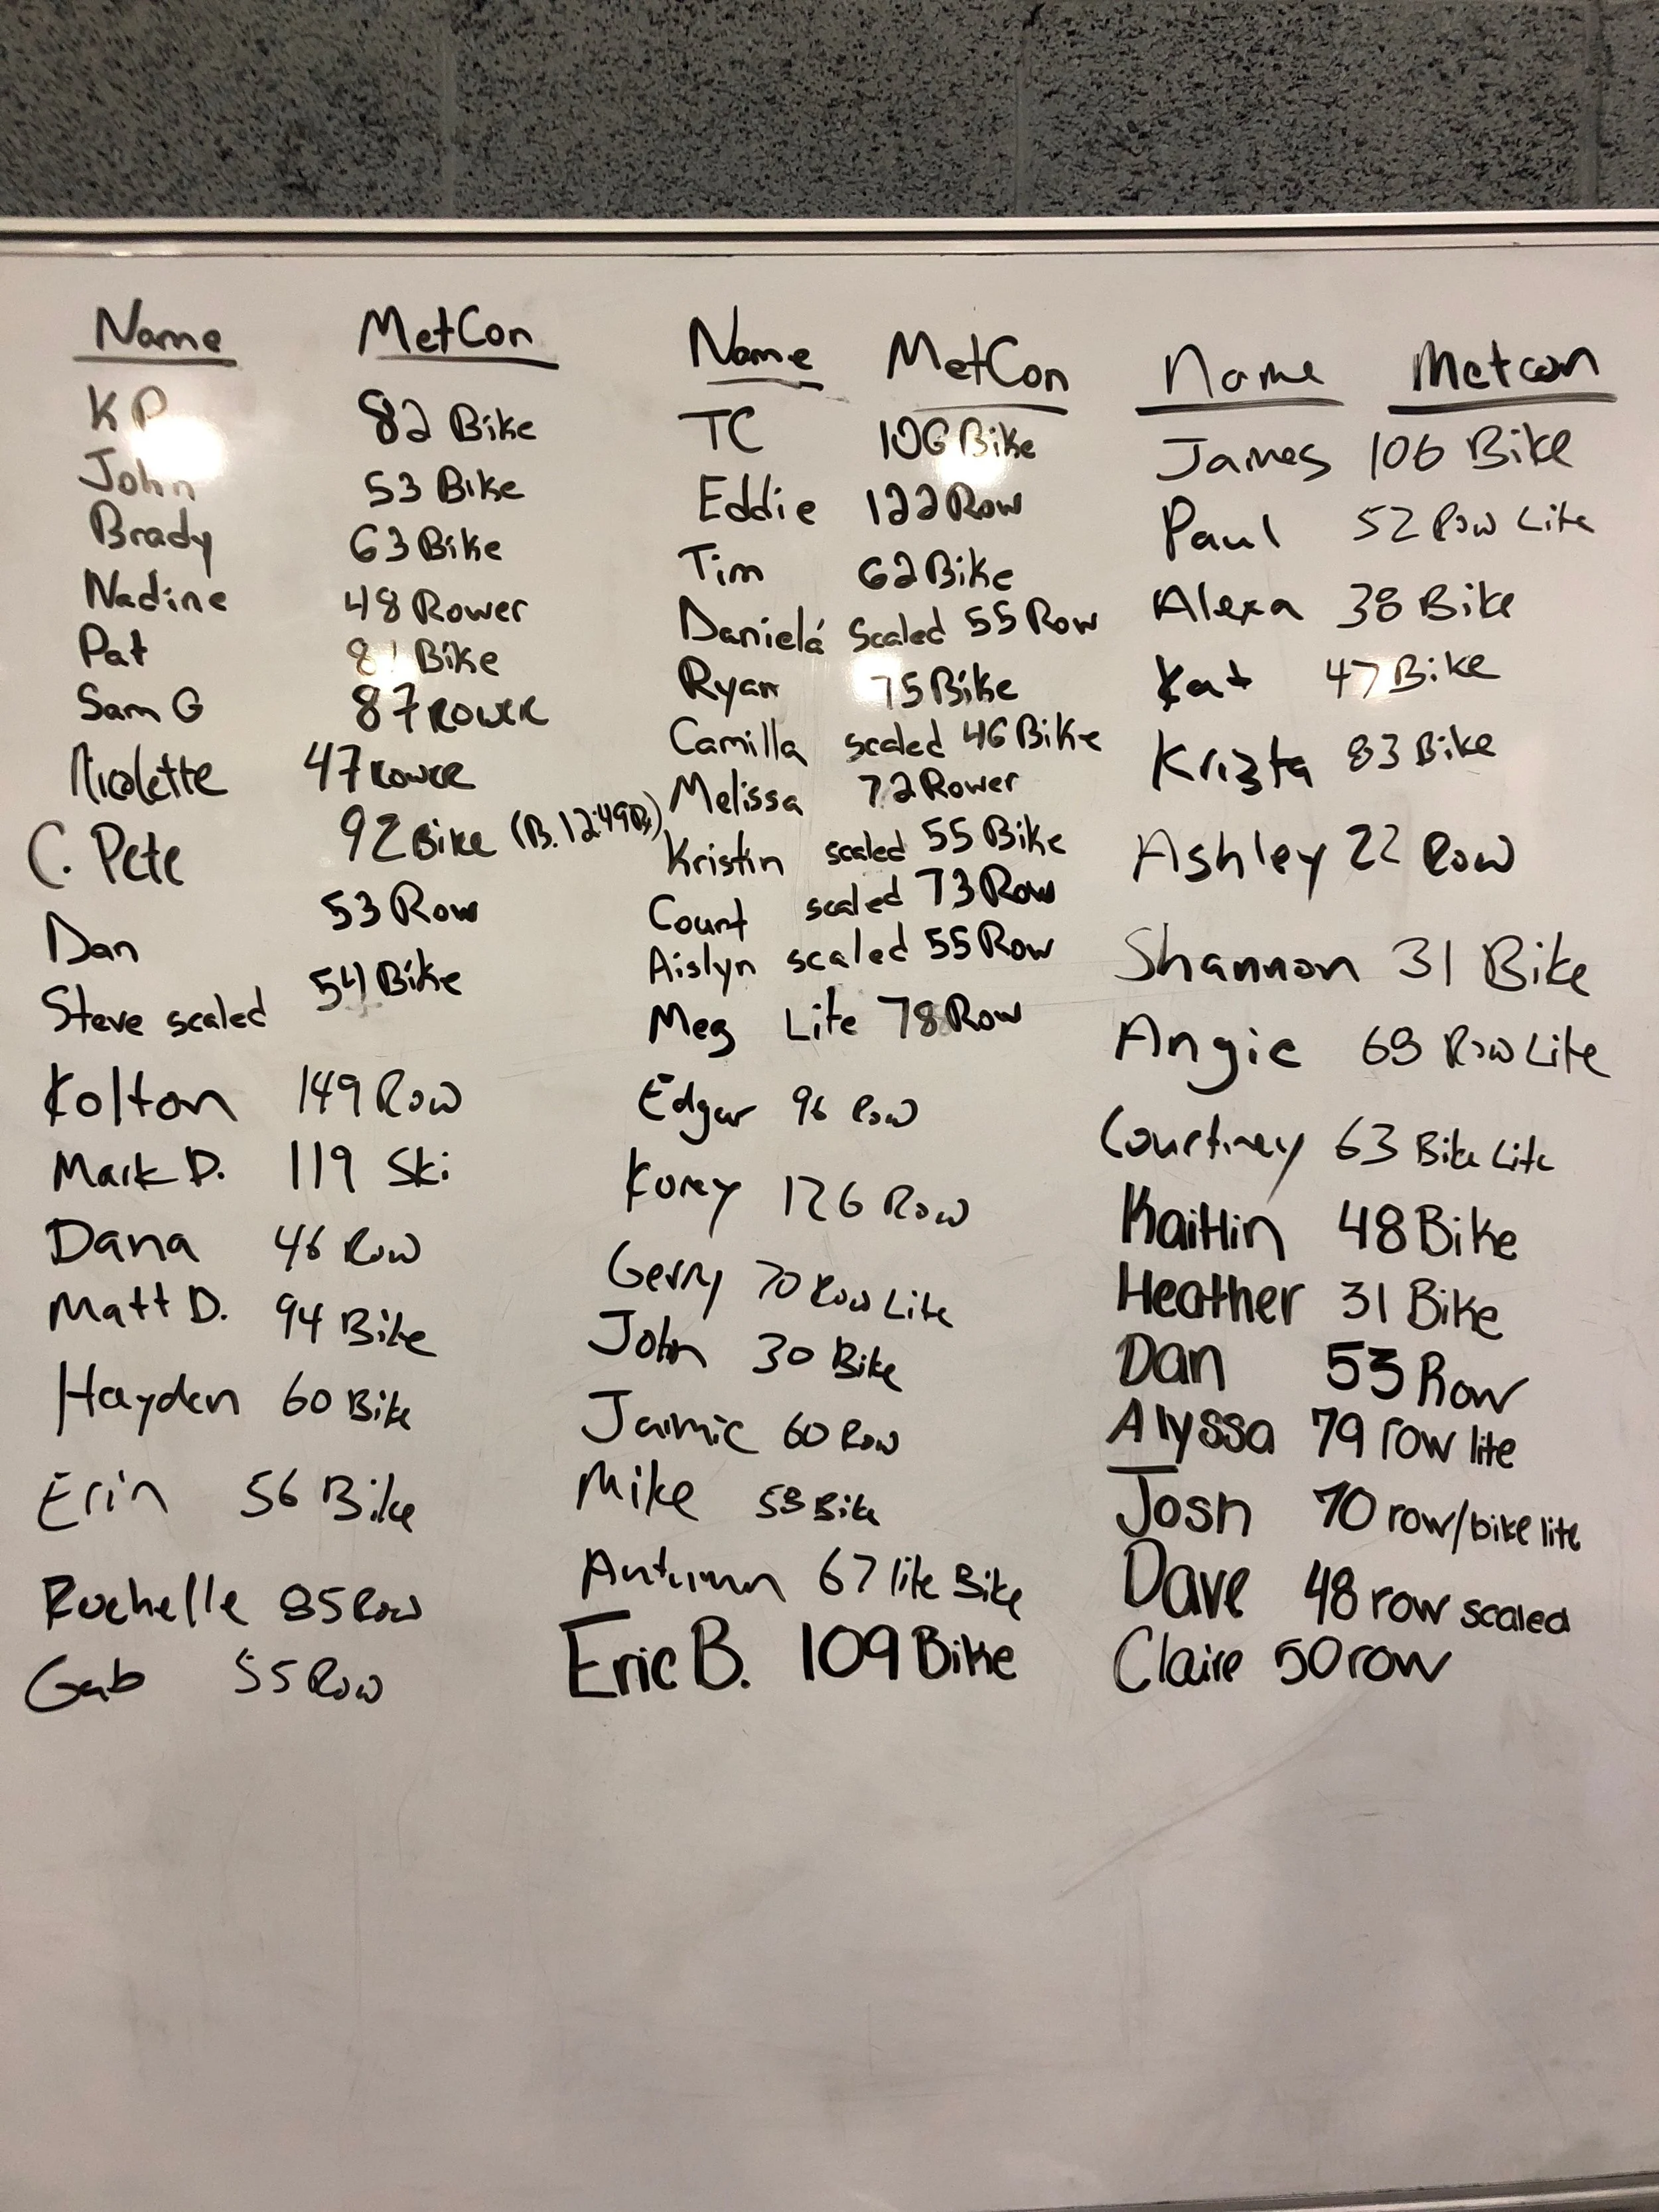 Name MetCon
KP 82 Bike
John 53 Bike
Brady 63 Bike
Nadine 48 Rower
Pat Bike
Sam G 87 Rower
Nicolette 47 Rower
C. Pete 92 Bike
Dan 53 Row
Steve scaled 54 Bike
Kolton 149 Row
Mark D. 119 Ski
Dana 46 Row
Matt D. 94 Bike
Hayden 60 Bike
Erin 56 Bike
Rochelle 85 Row
Gab 55 Row
Name MetCon
TC 106 Bike
Eddie 122 Row
Tim 62 Bike
Daniela scaled 55 Row
Ryan 75 Bike
Camilla scaled 46 Bike
Melissa 72 Rower
Kristin scaled 55 Bike
Court scaled 73 Row
Aislyn scaled 55 Row
Meg Lite 78 Row
Edgar 96 Row
Korey 126 Row
Gerry 70 Row Lite
John 30 Bike
Jaimie 60 Row
Mike Bike
Autumn 67 lite Bike
Eric B. 109 Bike
Name Metcon
James 106 Bike
Paul 52 Row Lite
Alexa 38 Bike
Kat 47 Bike
Krista 83 Bike
Ashley 22 Row
Shannon 31 Bike
Angie Row Lite
Courtney 63 Bike Lite
Kaitlin 48 Bike
Heather 31 Bike
Dan 53 Row
Alyssa 79 row lite
Josh 70 row/bike lite
Dave 48 row scaled
Claire 50 row